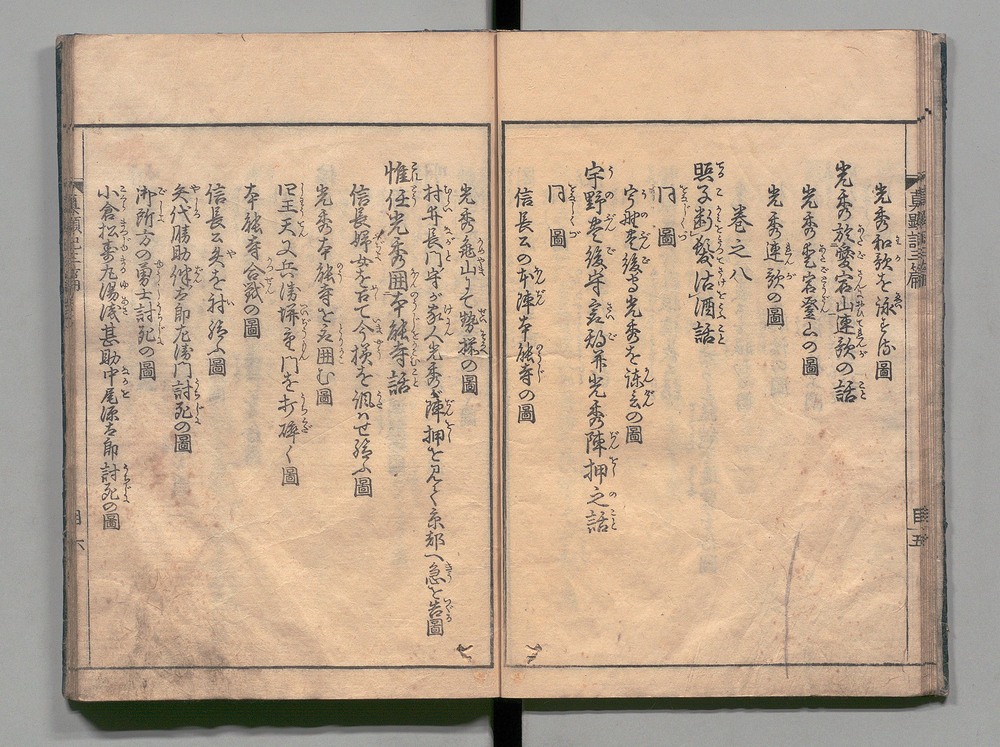 光秀和歌を詠ずる圖
光秀於愛宕山連歌の話
光秀愛宕登山の圖
光秀連歌の圖
巻之八
照子断髪沽酒話
同圖
宇野豊後守光秀を諫言の圖
宇野豊後守言 并光秀陣押之話
同圖
信長公の本陣本能寺の圖
光秀亀山にて勢揃の圖
村井長門守が家人光秀が陣押を見て京都へ急を告圖
惟任光秀囲本能寺話
信長婦女を召て今様を諷はせ給ふ圖
光秀本能寺を取囲む圖
四王天又兵衛塀重門を打碎く圖
本能寺合戦の圖
信長公矢を射給ふ圖
矢代勝助伴太郎左衛門討死の圖
御所方の勇士討死の圖
小倉松寿丸湯浅甚助中尾源太郎討死の圖
真顕記三篇
目五
目六